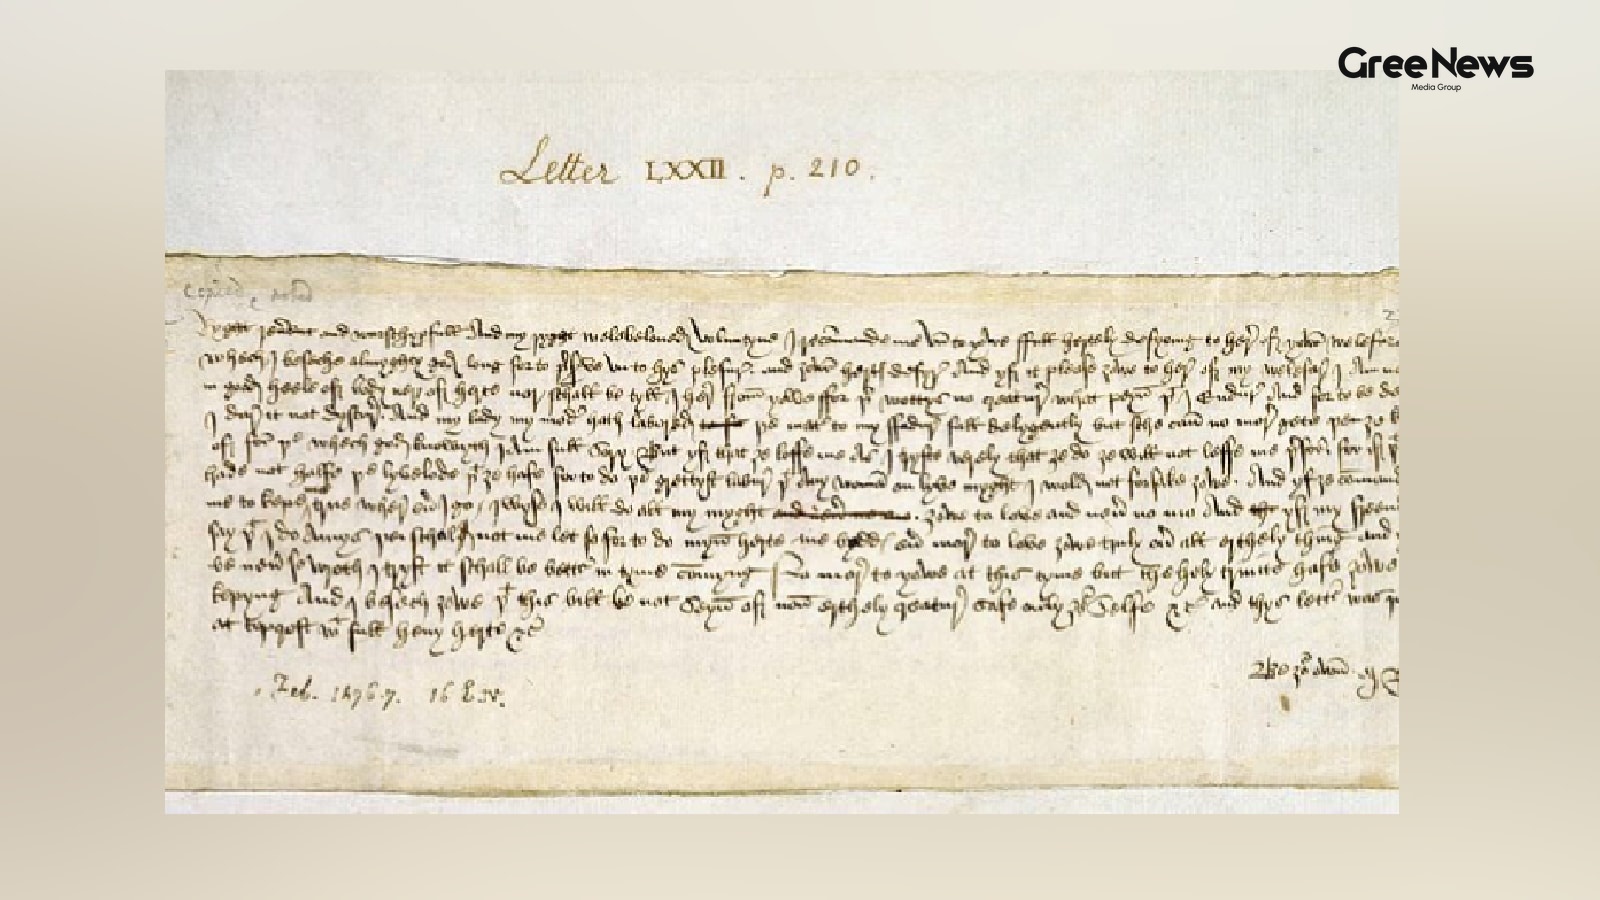 GreeNews
Media Group
Letter LXXII. p. 210.
Ryght reuerent and wurschypfull And my ryght welebeloued Voluntyne I recommande me vn to yowe ffull hertely desyring to here of yowr welefare
whech I beseche almyghty god long for to preserve vn to hys plesure and ȝowr hertys desyre And yf it please ȝowe to here of my welefare I am
in good heele of body ner of herte nor schall be tyll I here from yowe ffor þer wottys no creature what peyn þat I endure And for to be
I dare it not dyscure And my lady my moder hath labored þe mater to my ffadure full delygently but sche can no more gete þen ȝe
of for þe whech god knowyth I am full sory But yf that ȝe loffe me as I tryste verely that ȝe do ȝe will not leffe me þerfor for if þat
hade not halfe þe lyvelode þat ȝe hafe for to do þe grettyst labure þat any woman on lyve myght I wold not forsake ȝowe. And yf ȝe
me to kepe me true wher euer I go Iwyse I will do all my myght ȝowe to love and neuer no mo And yf my
say þat I do amys þei schal not me let so for to do myn herte me byddys euer more to love ȝowe truly ouer all erthely thing and
be neuer so wroth I tryst it schall be better in tyme commyng No more to yowe at this tyme but the holy trinite hafe ȝowe
kepyng And I besech ȝowe þat this bill be not seyn of non erthely creature safe only ȝour selfe &c And thys letter was
at Topcroft wt full heuy herte &c
Be ȝour own
Feb. 1476-7. 16 E.IV.